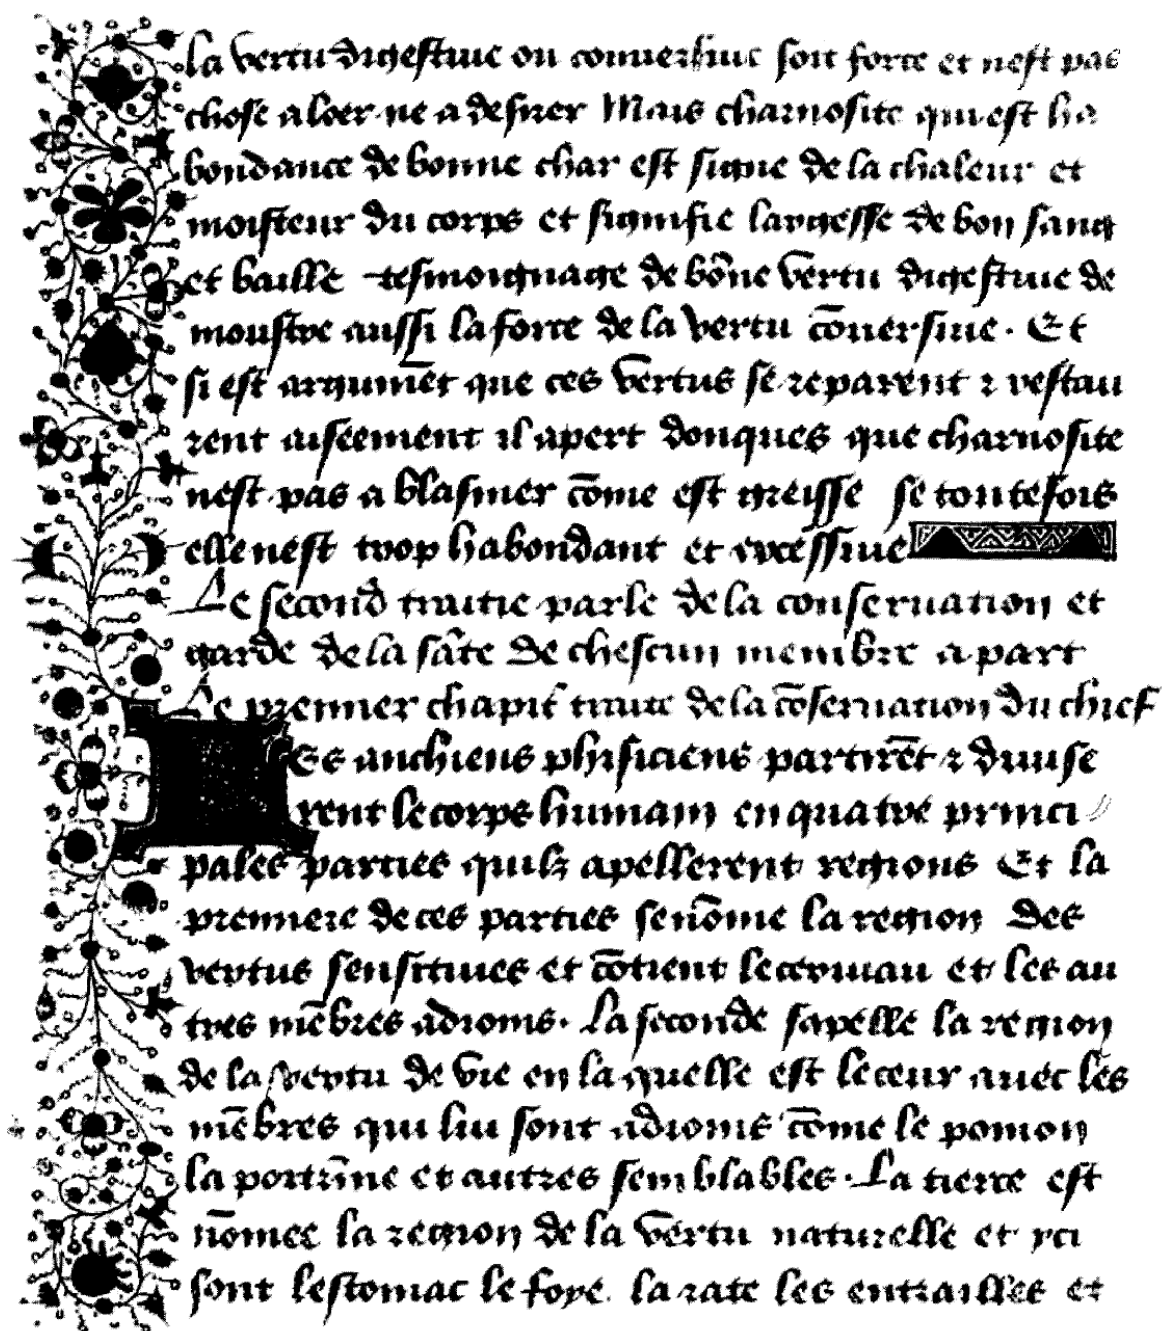 la vertu digestiue ou conuersiue soit forte et nest pas
chose a loer ne a desirer Mais charnosite qui est ha
bondance de bonne char est signe de la chaleur et
moisteur du corps et signifie largesse de bon sang
et baille tesmoignage de bo̅ne vertu digestiue de
moustre aussi la force de la vertu co̅uersiue · Et
si est argume̅t que ces vertus se reparent ⁊ restau
rent aiseement il apert donques que charnosite
nest pas a blasmer co̅me est gresse se toutefois
elle nest trop habondant et excessiue
Le second traitie parle de la conseruation et
garde de la sa̅te de chescun membre a part
Le premier chapit̅ traite de la co̅seruation du chief
Es anchiens phisiciens partire̅t ⁊ diuise
rent le corps humain en quatre princi
pales parties quilz apellerent regions Et la
premiere de ces parties se no̅me la region des
vertus sensitiues et co̅tient le ceruiau et les au
tres me̅bres adioins · La seconde sapelle la region
de la vertu de vie en la quelle est le ceur auec les
me̅bres qui lui sont adioins co̅me le pomon
la portri̅ne et autres semblables · La tierce est
no̅mee la region de la vertu naturelle et yci
sont lestomac le foye la rate les entrailles et